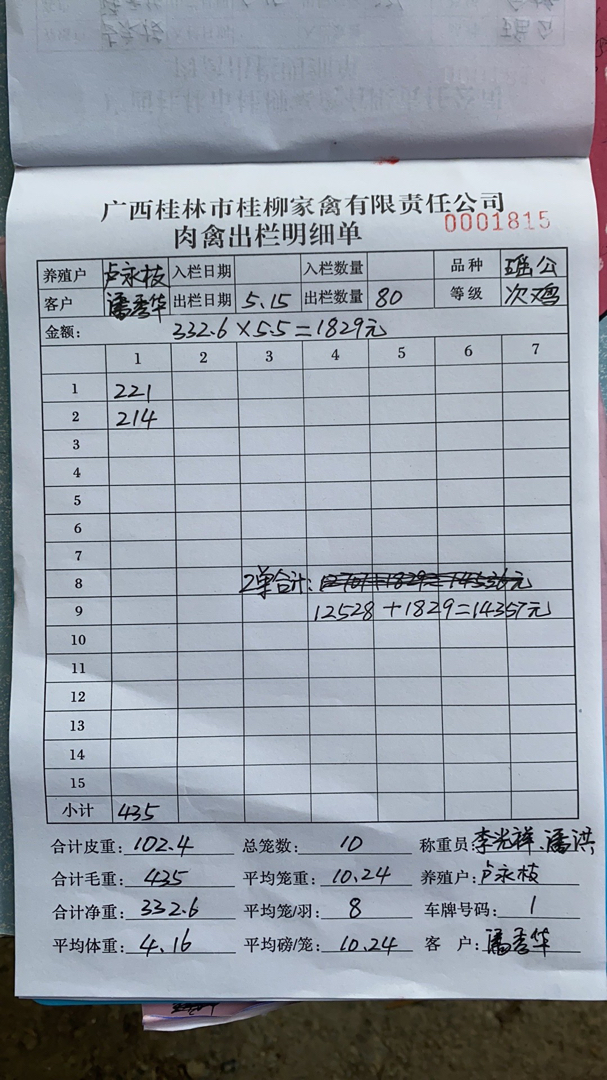 广西桂林市桂柳家禽有限责任公司
肉禽出栏明细单 0001815
养殖户 卢永枝 入栏日期 入栏数量 品种 瑶公
客户 潘秀华 出栏日期 5.15 出栏数量 80 等级 次鸡
金额: 332.6×5.5=1829元
1 2 3 4 5 6 7
1 221
2 214
3
4
5
6
7
8 2单合计:
9 12528+1829=14357元
10
11
12
13
14
15
小计 435
合计皮重: 102.4 总笼数: 10 称重员: 李光祥、潘洪
合计毛重: 435 平均笼重: 10.24 养殖户: 卢永枝
合计净重: 332.6 平均笼/羽: 8 车牌号码: 1
平均体重: 4.16 平均磅/笼: 10.24 客户: 潘秀华